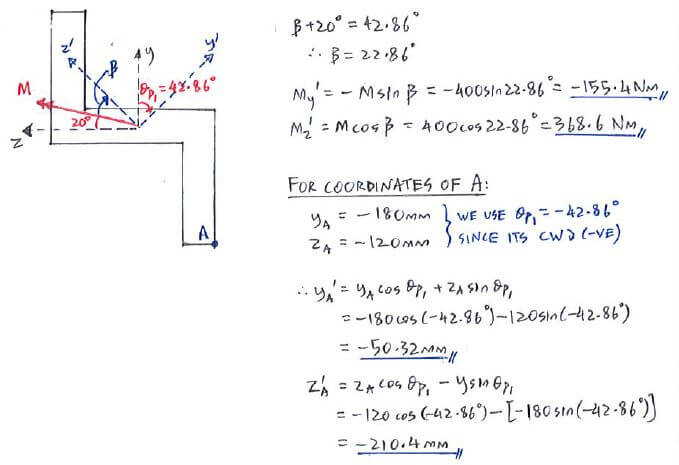 β+20°=42.86°
∴ β=22.86°
My'= -Msinβ = -400sin22.86°= -155.4Nm
Mz'= Mcosβ = 400cos22.86°=368.6 Nm
z'
y
y'
β
θp₁=42.86°
M
20°
z
A
FOR COORDINATES OF A:
yA = -180mm } WE USE θp₁=-42.86°
zA = -120mm } SINCE ITS CWD (-VE)
∴ yA'= yA cos θp₁ + zA sin θp₁
= -180cos(-42.86°)-120sin(-42.86°)
= -50.32mm
z'A = zA cos θp₁ - ysinθp₁
= -120 cos(-42.86°)-[-180sin(-42.86°)]
= -210.4mm